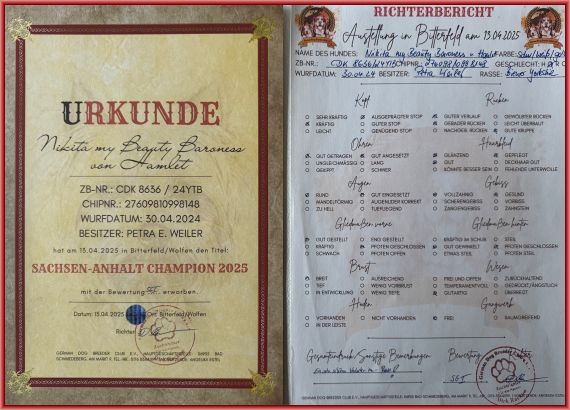 URKUNDE
Nikita my Beauty Baroness
von Hamlet
ZB-NR.: CDK 8636 / 24YTB
CHIPNR.: 27609810998148
WURFDATUM: 30.04.2024
BESITZER: PETRA E. WEILER
hat am 13.04.2025 in Bitterfeld/Wolfen den Titel:
SACHSEN-ANHALT CHAMPION 2025
mit der Bewertung SG1. erworben.
Datum: 13.04.2025 Ort: Bitterfeld/Wolfen
Richter:
GERMAN DOG BREEDER CLUB E.V.
RICHTERBERICHT
Ausstellung in Bitterfeld am 13.04.2025
NAME DES HUNDES: Nikita my Beauty Baroness v. Hamlet FARBE:
ZB-NR.: CDK 8636/24YTB CHIPNR.: GESCHLECHT: H
WURFDATUM: 30.04.24 BESITZER: Petra RASSE: Biewer Yorkshire
Kopf Rücken
SEHR KRÄFTIG AUSGEPRÄGTER STOP GUTER VERLAUF GEWÖLBTER RÜCKEN
KRÄFTIG GUTER STOP GERADER RÜCKEN LEICHT ÜBERBAUT
LEICHT GENÜGEND STOP NACHGEB. RÜCKEN GUTE KRUPPE
Ohren Haarkleid
GUT GETRAGEN GUT ANGESETZT GLÄNZEND GEPFLEGT
UNGLEICHMÄSSIG LANG GUT DECKHAAR GUT
GEKIPPT SCHWER KÖNNTE BESSER SEIN FEHLENDE UNTERWOLLE
Augen Gebiss
RUND GUT EINGESETZT VOLLZAHNIG GESUND
MANDELFÖRMIG AUGENLIDER KORREKT SCHERENGEBISS VORBISS
ZU HELL TIEFLIEGEND ZANGENGEBISS ZAHNSTEIN
Gliedmaßen vorne Gliedmaßen hinten
GUT GESTELLT ENG GESTELLT KRÄFTIG IM SCHUB STEIL
KRÄFTIG PFOTEN GESCHLOSSEN GUT GEWINKELT PFOTEN GESCHLOSSEN
SCHWACH PFOTEN OFFEN ETWAS STEIL PFOTEN OFFEN
Brust Wesen
BREIT AUSREICHEND FREI UND OFFEN ZURÜCKHALTEND
TIEF WENIG VORBRUST TEMPERAMENTVOLL GEDRÜCKT/ÄNGSTLICH
IN ENTWICKLUNG WENIG TIEFE GUTARTIG ÜBERREIZT
Hoden Gangwerk
VORHANDEN NICHT VORHANDEN FREI RAUMGREIFEND
IN DER LEISTE
Gesamteindruck/Sonstige Bemerkungen: Bewertung